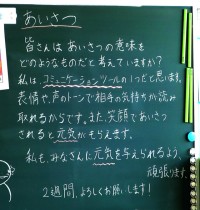 あいさつ
皆さんはあいさつの意味を
どのようなものだと考えていますか?
私は、コミュニケーションツールの1つだと思います。
表情や、声のトーンで相手の気持ちが読み
取れるからです。また、笑顔であいさつ
されると元気がもらえます。
私も、みなさんに元気を与えられるよう、
頑張ります。
2週間、よろしくお願いします!